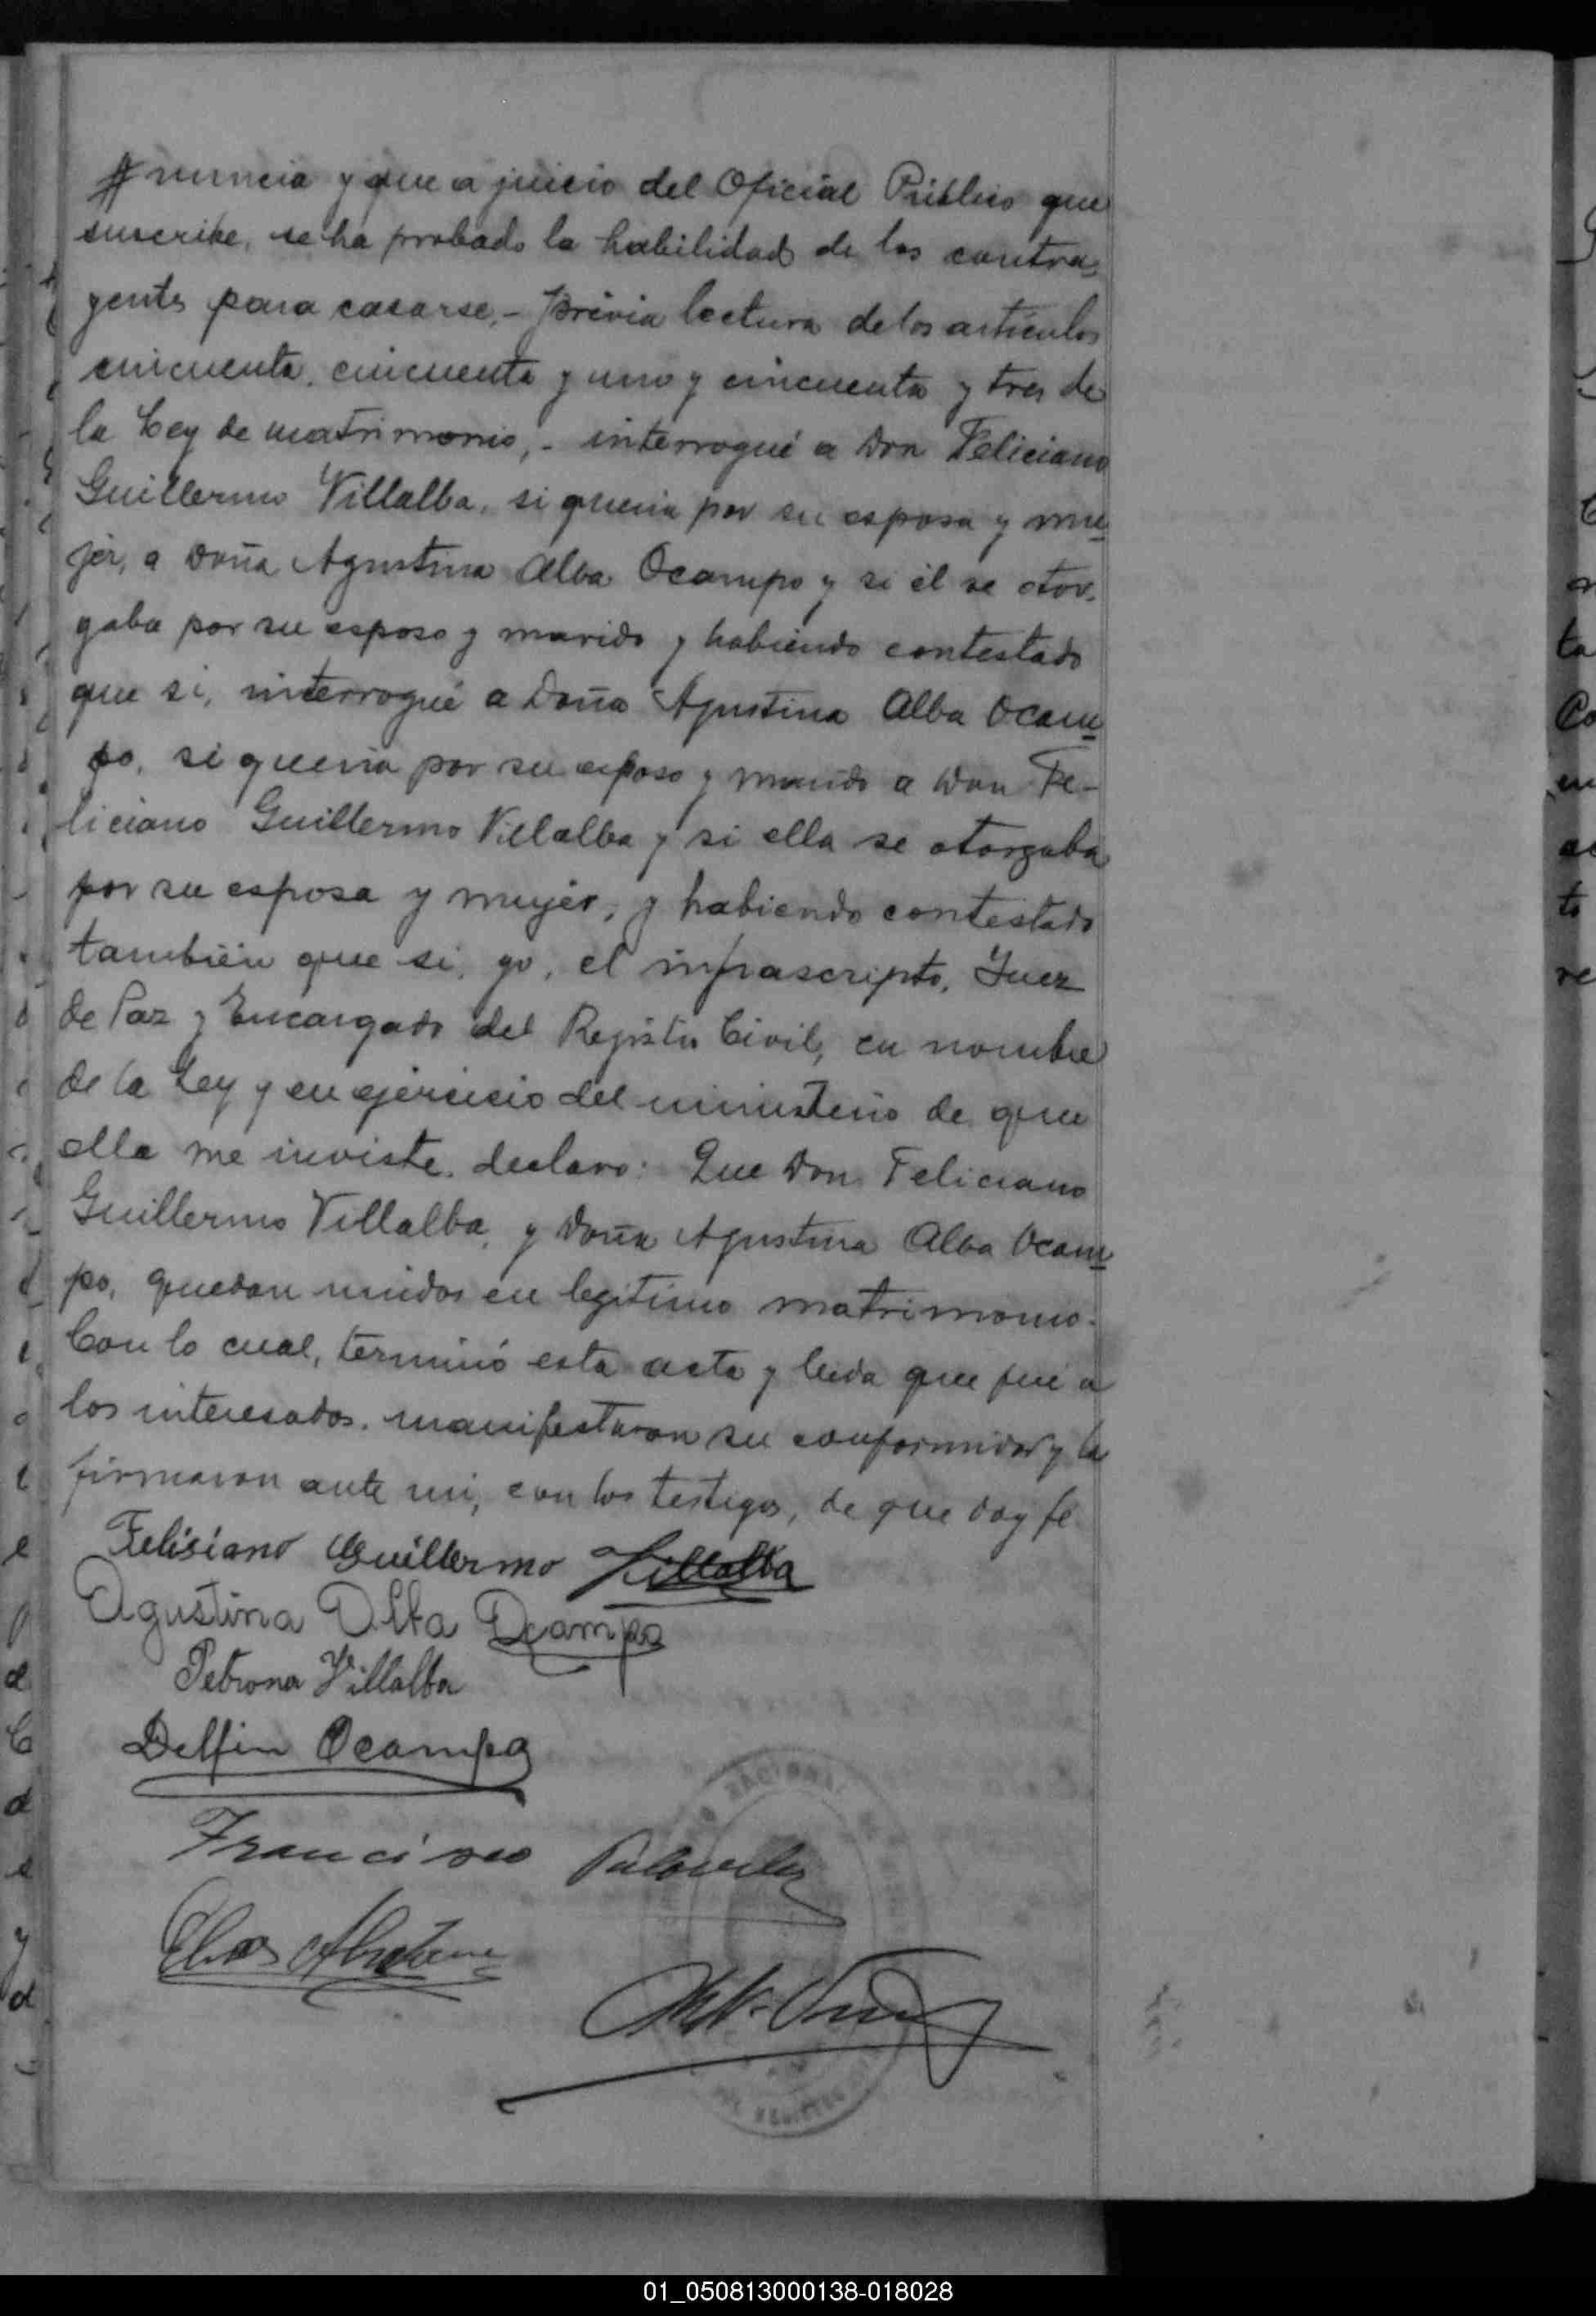 nuncia y que a juicio del Oficial Público que
suscribe, se ha probado la habilidad de los contra=
yentes para casarse.- Previa lectura de los artículos
cincuenta, cincuenta y uno y cincuenta y tres de
la Ley de matrimonio,- interrogué a Don Feliciano
Guillermo Villalba, si queria por su esposa y mu
jer, a Doña Agustina Alba Ocampo y si él se otor-
gaba por su esposo y marido y habiendo contestado
que si, interrogué a Doña Agustina Alba Ocam
po, si queria por su esposo y marido a Don Fe-
liciano Guillermo Villalba y si ella se otorgaba
por su esposa y mujer, y habiendo contestado
también que si, yo, el infrascripto, Juez
de Paz y Encargado del Registro Civil, en nombre
de la Ley y en ejercicio del ministerio de que
ella me inviste, declaro: Que Don Feliciano
Guillermo Villalba, y Doña Agustina Alba Ocam
po, quedan unidos en legítimo matrimonio.
Con lo cual, terminó esta acta y leida que fué a
los interesados, manifestaron su conformidad y la
firmaron ante mi, con los testigos, de que doy fe
Felisiano Guillermo Villalba
Agustina Alba Ocampo
Petrona Villalba
Delfin Ocampo
Francisco
Elias
NACIONAL
DEL REGISTRO
01_050813000138-018028